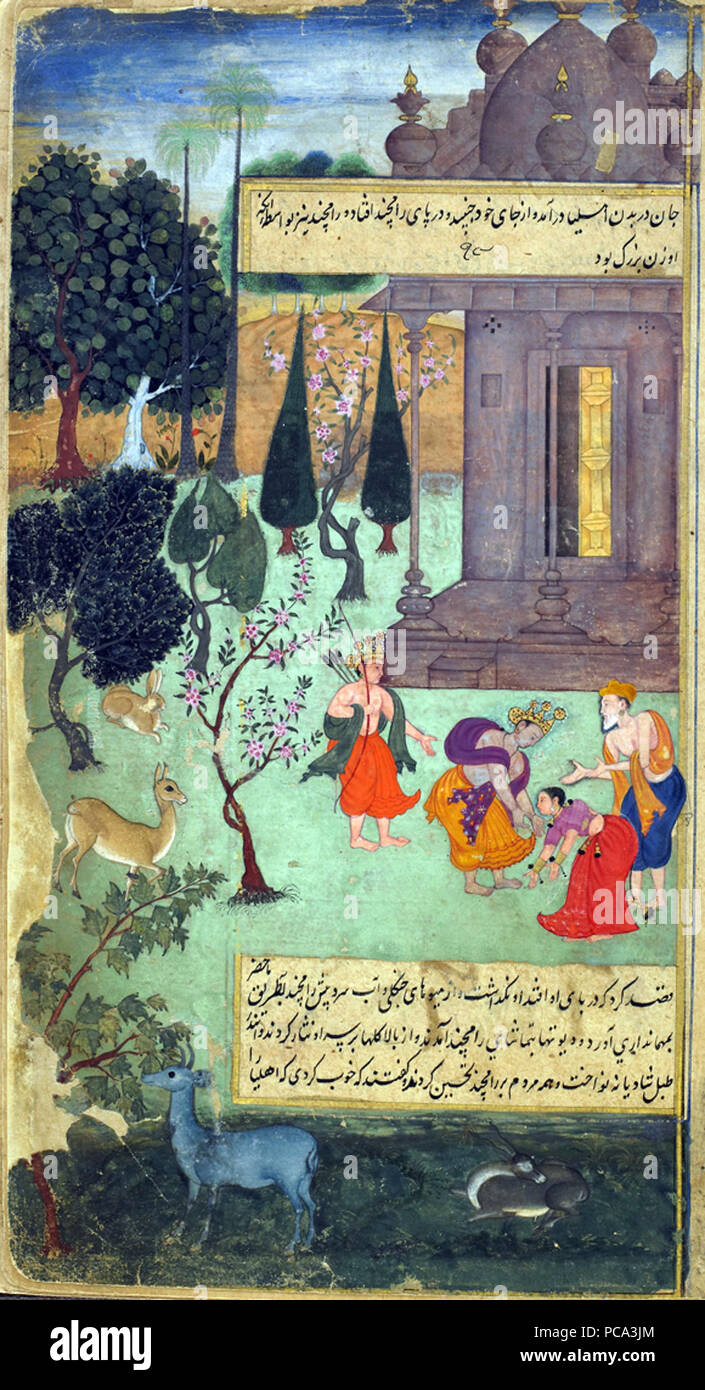 جان در بدن اهلیا در آمد و از جای خود جنبید و در پای رامچند افتاد و رامچند نیز بواسطه آنکه
او زن بزرگ بود
قصد کرد که در پای او افتد او نگذاشت و از میوهای جنگلی و آب سرد پیش رامچند بطریق ماحضر
بمهمانداری آورد و دیوتها بتماشای رامچند آمدند و از بالا گلها بر سر او نثار کردند و
طبل شادیانه نواخت و همه مردم بر رامچند تحسین کردند و گفتند که خوب کردی که اهلیا را
alamy
Image ID: PCA3JM
www.alamy.com